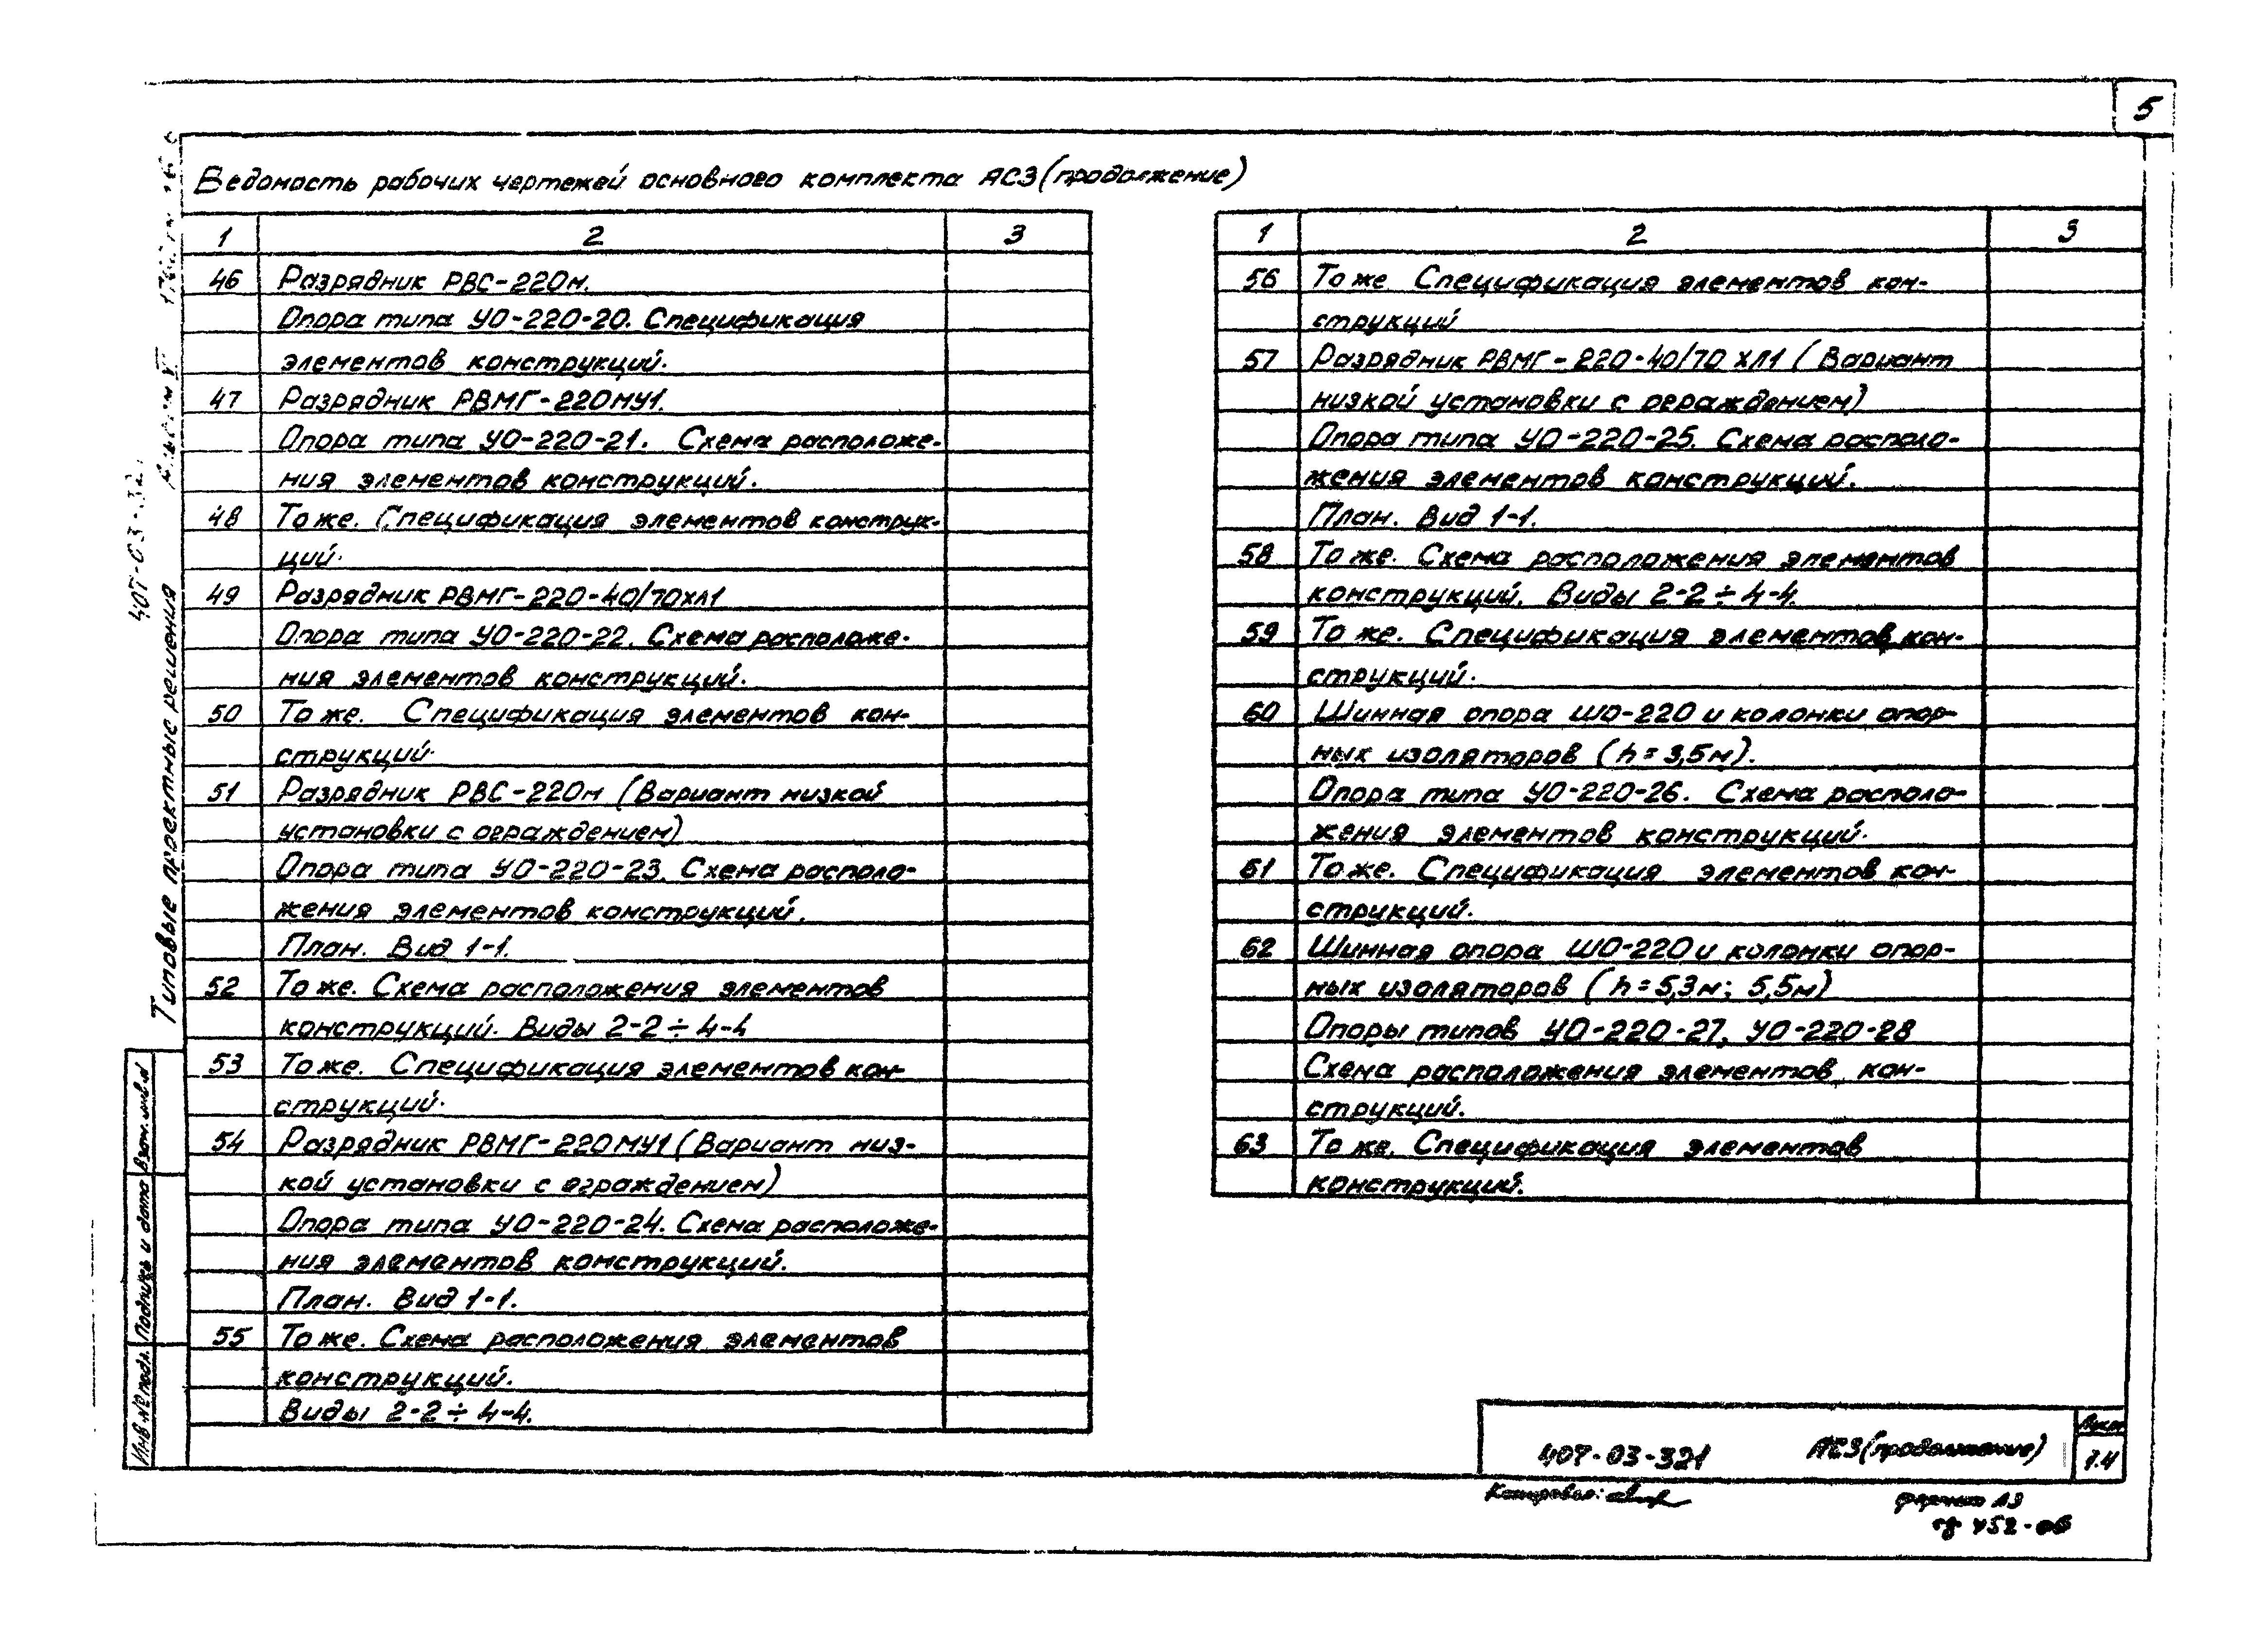 5
Ведомость рабочих чертежей основного комплекта АС3 (продолжение)
1 2 3
46 Разрядник РВС-220м.
Опора типа УО-220-20. Спецификация
элементов конструкций.
47 Разрядник РВМГ-220МУ1.
Опора типа УО-220-21. Схема расположе-
ния элементов конструкций.
48 То же. Спецификация элементов конструк-
ций.
49 Разрядник РВМГ-220-40/70ХЛ1
Опора типа УО-220-22. Схема расположе-
ния элементов конструкций.
50 То же. Спецификация элементов кон-
струкций.
51 Разрядник РВС-220м (Вариант низкой
установки с ограждением)
Опора типа УО-220-23. Схема располо-
жения элементов конструкций.
План. Вид 1-1.
52 То же. Схема расположения элементов
конструкций. Виды 2-2 ÷ 4-4
53 То же. Спецификация элементов кон-
струкций.
54 Разрядник РВМГ-220МУ1 (Вариант низ-
кой установки с ограждением)
Опора типа УО-220-24. Схема расположе-
ния элементов конструкций.
План. Вид 1-1.
55 То же. Схема расположения элементов
конструкций.
Виды 2-2 ÷ 4-4.
1 2 3
56 То же Спецификация элементов кон-
струкций
57 Разрядник РВМГ-220-40/70 ХЛ1 (Вариант
низкой установки с огражdением)
Опора типа УО-220-25. Схема располо-
жения элементов конструкций.
План. Вид 1-1.
58 То же. Схема расположения элементов
конструкций. Виды 2-2 ÷ 4-4.
59 То же. Спецификация элементов кон-
струкций.
60 Шинная опора ШО-220 и колонки опор-
ных изоляторов (h=3,5м).
Опора типа УО-220-26. Схема располо-
жения элементов конструкций.
61 То же. Спецификация элементов кон-
струкций.
62 Шинная опора ШО-220 и колонки опор-
ных изоляторов (h=5,3м; 5,5м)
Опоры типов УО-220-27, УО-220-28
Схема расположения элементов кон-
струкций.
63 То же. Спецификация элементов
конструкций.
Типовые проектные решения
Взам. инв. №
Подпись и дата
Инв. № подл.
407-03-321 АС3 (продолжение)
Лист
1.4
Копировал:
формат А3